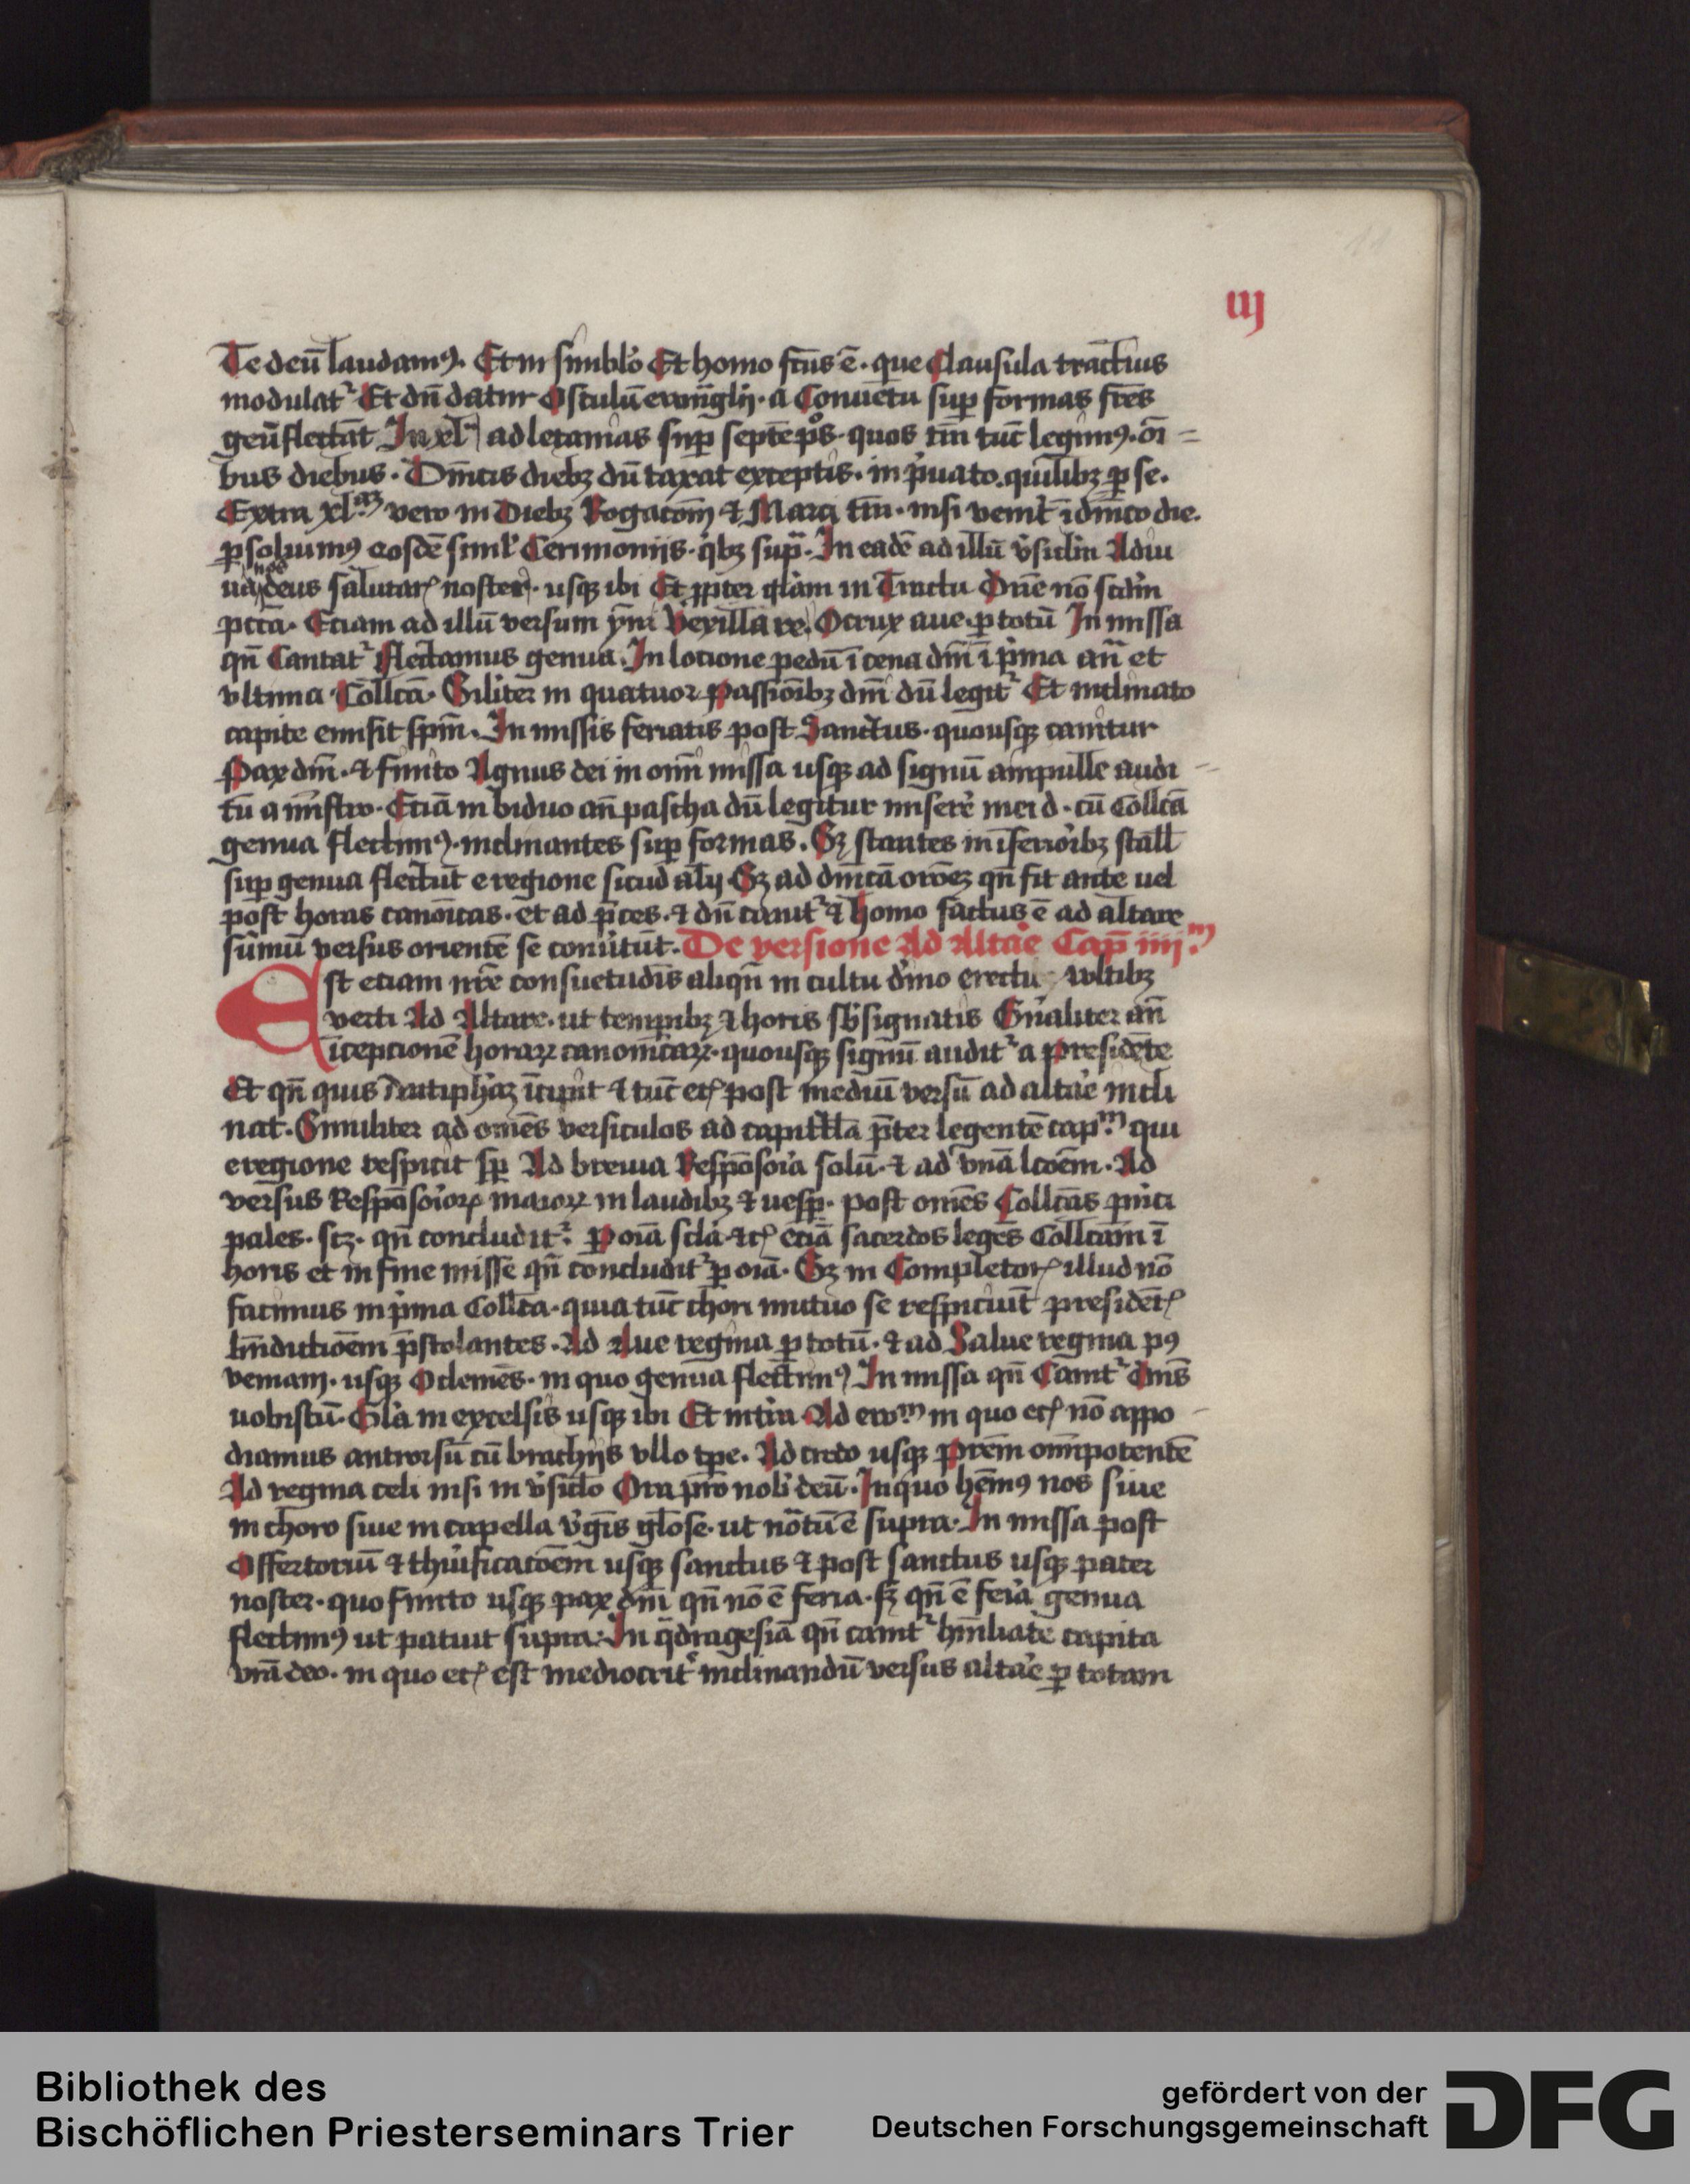 iij
Te deū laudamꝰ. Et in simblo Et homo fcūs ē. que Clausula tractius
modulatᷣ Et dn̄ datur Osculū ewāglij. a Conuētu suꝑ formas frēs
genuflectāt In xl ad letanias suꝑ septē pōs. quos tm̄ tūc legimꝰ. oı̄
bus diebus. Dn̄icis diebꝫ dūtaxat exceptis. in pͥuato. quilibꝫ ꝑ se.
Extra xlᵃᵐ vero in Diebꝫ Rogacōm ⁊ Marci tm̄. nisi venit̄ ī dn̄ico die.
ꝑsoluimꝰ eosdē simlꝰ Cerimonijs. qͥbꝫ supᷓ. In eadē ad illū v̓siclm Adiu
ua nos deus salutarꝭ noster. usqꝫ ibi Et ꝓpter glām in Tractu Dn̄e nō scdm̄
pctā. Etiam ad illū versum ymī Vexilla re. O crux aue. ꝑ totū In missa
qn̄ Cantatᷣ flectamus genua. In locione pedū ī cena dn̄i ī pͥma an̄ et
vltima Collcā. Siliter in quatuor passiōibꝫ dn̄i dū legitᷣ Et inclinato
capite emisit spm̄. In missis feriatis post Sanctus. quousqꝫ canitur
Pax dn̄i. ⁊ finito Agnus dei in om̄i missa usqꝫ ad signū ampulle audi
tū a mīstro. Etiā in biduo an̄ pascha dū legitur miserē mei d. cū Collcā
genua flectimꝰ. inclinantes suꝑ formas. Sꝫ stantes in īferioribꝫ stall
suꝑ genua flectūt e regione sicud alij Sꝫ ad dn̄icā orōeꝫ qn̄ fit ante uel
post horas canōicas. et ad p̄ces. ⁊ dn̄ canitᷣ ⁊ homo factus ē ad altare
sūmū versus orientē se conu̓tūt. De versione Ad Altar̄e Cap̄ iiijᵐ
Est etiam nr̄e consuetudīs aliqn̄ in cultu dı̓no erectis vultibꝫ
verti Ad Altare. ut temꝑibꝫ ⁊ horis sb̄signatis Gn̄aliter an̄
īcepcionē horaꝝ canonicaꝝ. quousqꝫ signū auditᷣ a presidēte
Et qn̄ quis antiphāꝫ īcipit ⁊ tūc ecꝭ post mediū versū ad altar̄e incli
nat. Similiter ad om̄es versiculos ad capitl̄la p̄ter legentē capᵐ qui
e regione respicit sꝑ Ad breuia Respōsoria solū. ⁊ ad vnā lcōem. Ad
versus Respōsorioꝝ maioꝝ in laudibꝫ ⁊ uesꝑ. post om̄es Collcās pͥnci
pales. scꝫ. qn̄ concluditᷣ. Ꝑ oīa scla ⁊cꝭ etiā sacerdos legēs Collcām ī
horis et in fine misse qn̄ concluditᷣ ꝑ oīa. Sꝫ in Completorꝭ illud nō
facimus in pͥma Collcā. quia tūc chori mutuo se respiciūt presidētꝭ
bn̄dictiōem p̄stolantes. Ad Aue regina ꝑ totū. ⁊ ad Salue regina pꝰ
veniam. usqꝫ O clemēs. in quo genua flectimꝰ In missa qn̄ Canitᷣ Dn̄s
uobiscū. Glā in excelsis usqꝫ ibi Et in tra Ad ewᵐ in quo ecꝭ nō appo
diamus antrorsū cū brachijs vllo tꝑe. Ad credo usqꝫ pr̄em om̄ipotentē
Ad regina celi nisi in v̓siclo Ora pro nobꝭ deū. In quo hēmꝰ nos siue
in choro siue in capella v̓gīs gl̄ose. ut nōtū ē supra. In missa post
Offertoriū ⁊ thuͥficacōem usqꝫ sanctus ⁊ post sanctus usqꝫ pater
noster. quo finito usqꝫ pax dn̄i qn̄ nō ē feria. sꝫ qn̄ ē feria genua
flectimꝰ ut patuit supra. In qͣdragesiā qn̄ canitᷣ hūiliate capita
vr̄a deo. in quo ecꝭ est mediocrit̓ inclinandū versus altar̄e ꝑ totam
Bibliothek des
Bischöflichen Priesterseminars Trier
gefördert von der
Deutschen Forschungsgemeinschaft
DFG